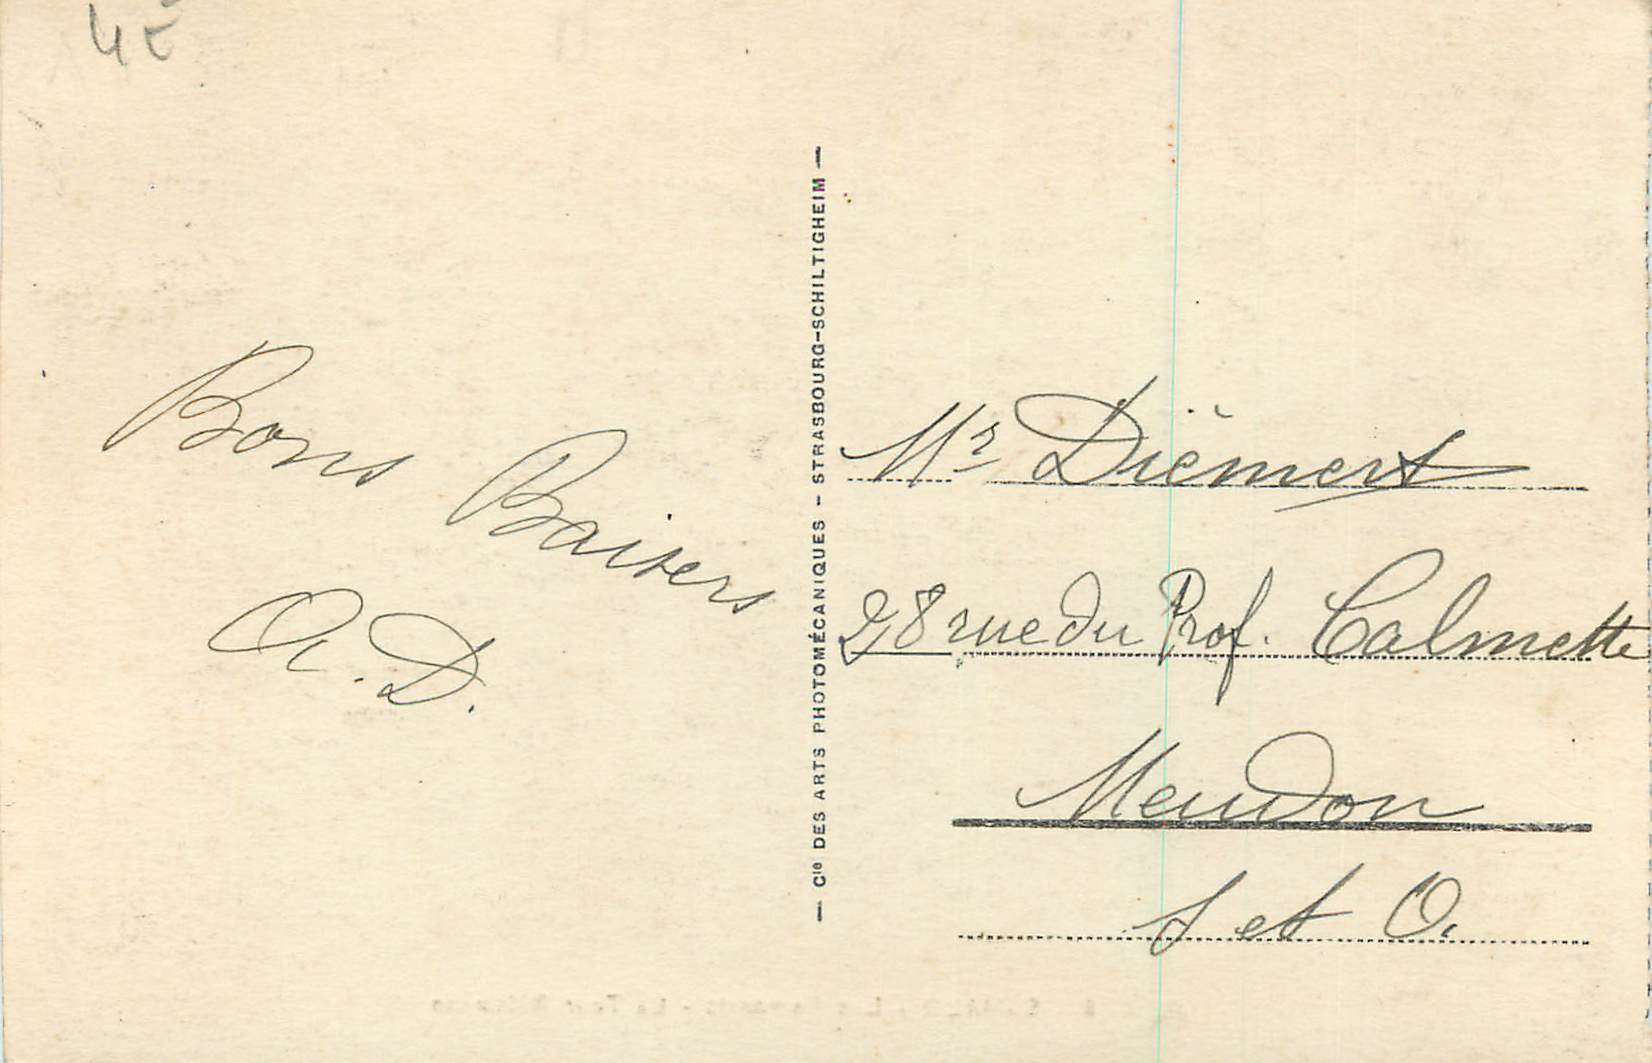 4€
Bons Baisers
A. D.
— Cie DES ARTS PHOTOMÉCANIQUES - STRASBOURG-SCHILTIGHEIM —
Mr Diëmert
28 rue du Prof. Calmette
Meudon
S et O.